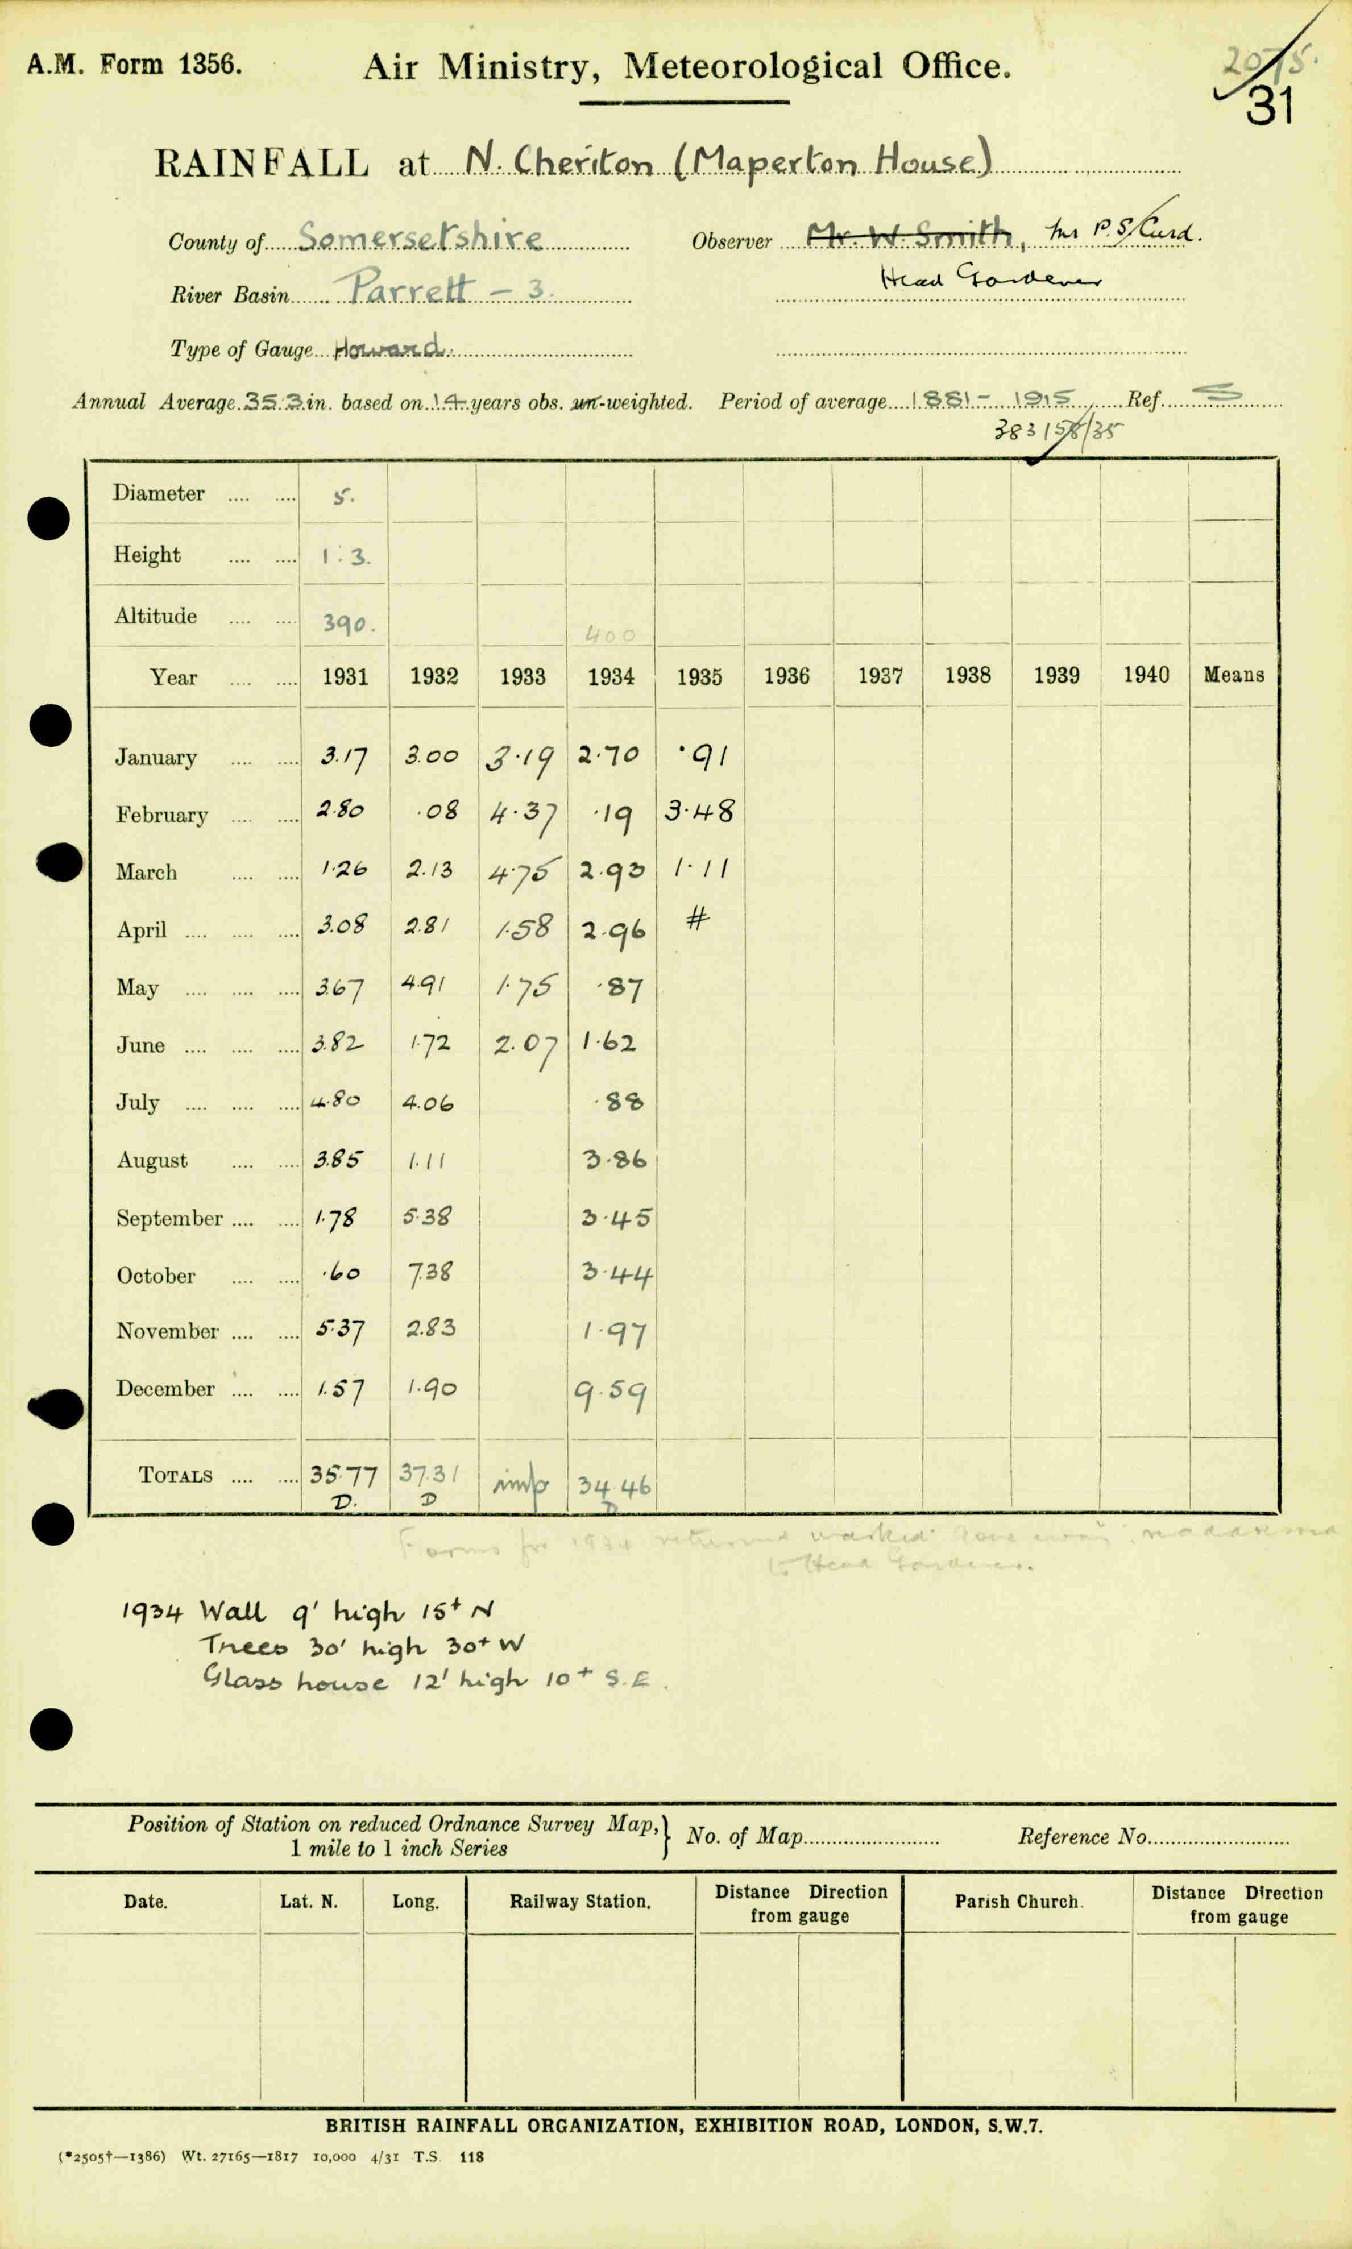 A.M. Form 1356.
Air Ministry, Meteorological Office.
31
RAINFALL at N. Cheriton (Maperton House)
County of Somersetshire Observer Mr. W. Smith,
Head Gardener
River Basin Parrett - 3.
Type of Gauge Howard.
Annual Average 35.3 in. based on 14 years obs. un-weighted. Period of average 1881- 1915 Ref. S
383158/35
Diameter 5.
Height 1:3.
Altitude 390. 400
Year 1931 1932 1933 1934 1935 1936 1937 1938 1939 1940 Means
January 3.17 3.00 3.19 2.70 .91
February 2.80 .08 4.37 .19 3.48
March 1.26 2.13 4.75 2.93 1.11
April 3.08 2.81 1.58 2.96 #
May 3.67 4.91 1.75 .87
June 3.82 1.72 2.07 1.62
July 4.80 4.06 .88
August 3.85 1.11 3.86
September 1.78 5.38 3.45
October .60 7.38 3.44
November 5.37 2.83 1.97
December 1.57 1.90 9.59
TOTALS 35.77 37.31 imp 34.46
D. D D
Forms for 1934 returned marked gone away: readdressed
to Head Gardener.
1934 Wall 9' high 15+ N
Trees 30' high 30+ W
Glass house 12' high 10+ S.E.
Position of Station on reduced Ordnance Survey Map,
1 mile to 1 inch Series
No. of Map Reference No.
Date. Lat. N. Long. Railway Station. Distance Direction from gauge Parish Church. Distance Direction from gauge
BRITISH RAINFALL ORGANIZATION, EXHIBITION ROAD, LONDON, S.W.7.
(*2505†—1386) Wt. 27165—1817 10,000 4/31 T.S. 118